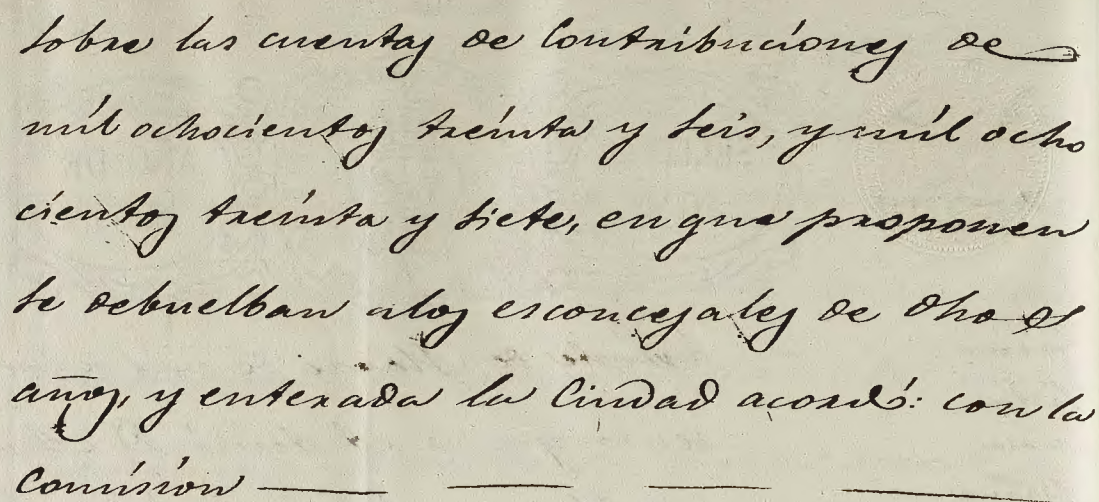 sobre las cuentas de Contribuciones de
mil ochocientos treinta y seis, y mil ocho
cientos treinta y siete, en que proponen
se debuelban alos esconcejales de dhos
años, y enterada la Ciudad acordó: con la
Comisión